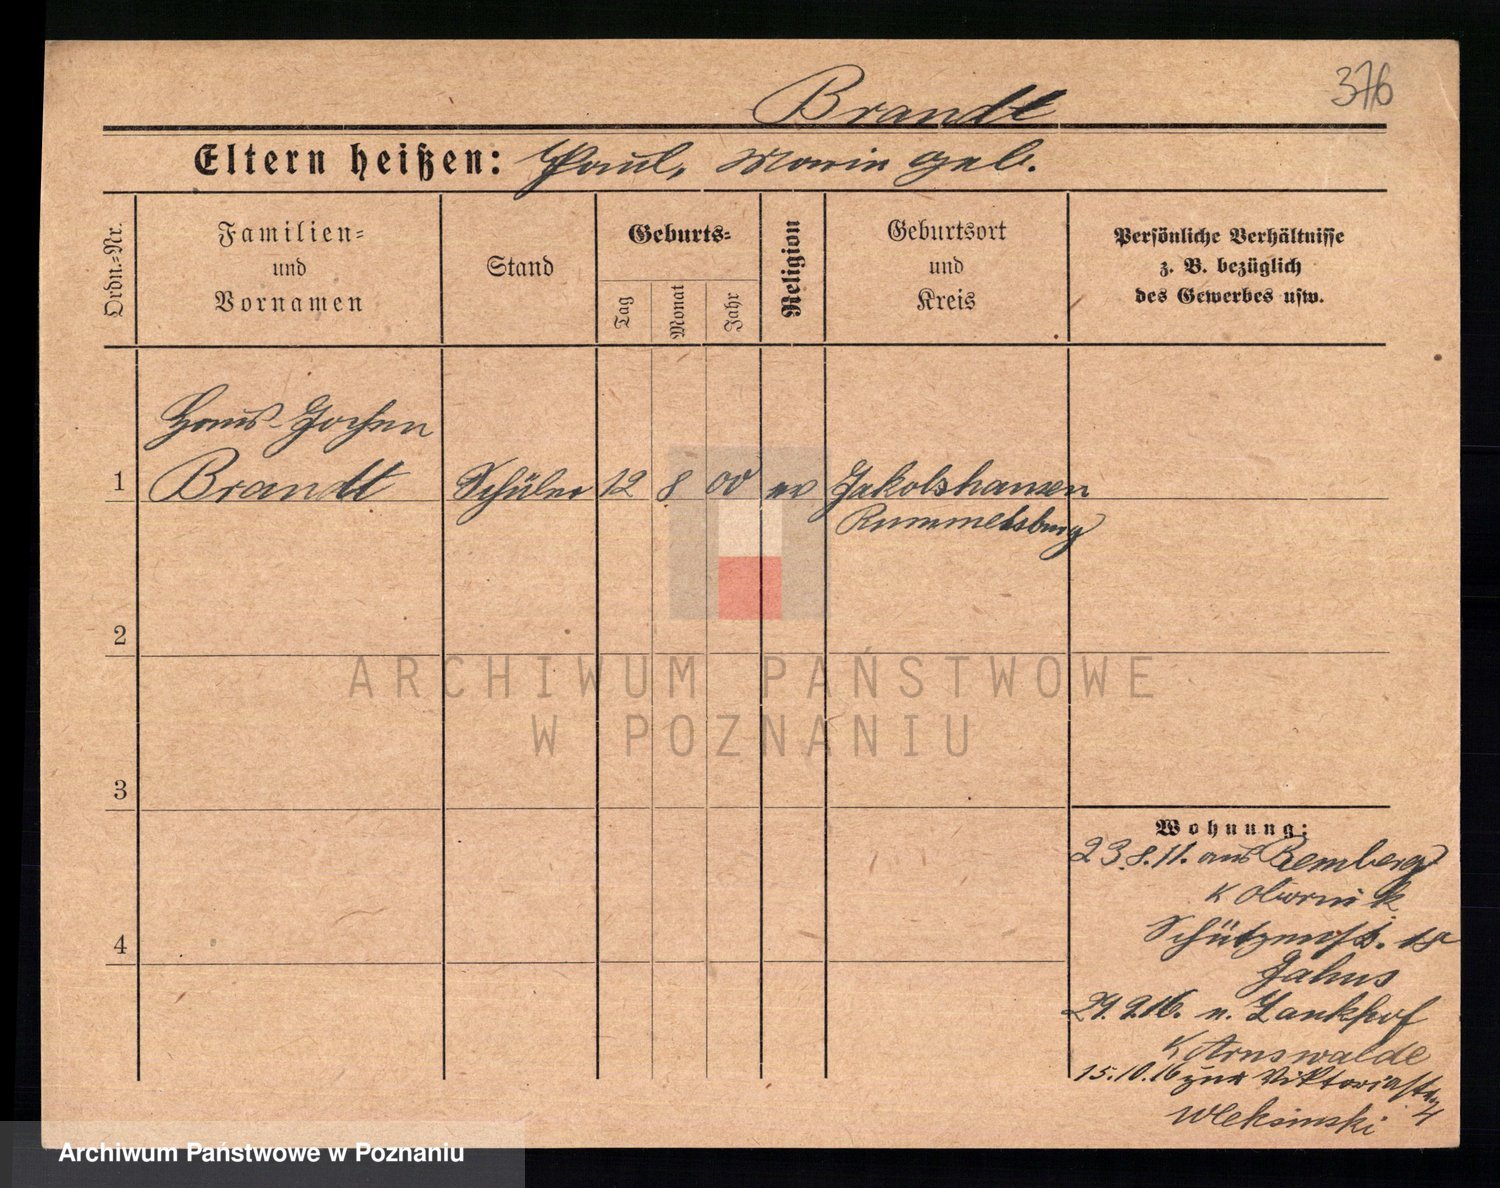 Brandt
376
Eltern heißen: Paul, Marie geb.
Ordn.-Nr.
Familien-
und
Vornamen
Stand
Geburts-
Tag
Monat
Jahr
Religion
Geburtsort
und
Kreis
Persönliche Verhältnisse
z. B. bezüglich
des Gewerbes usw.
Hans-Jochen
1 Brandt Schüler 12 8 00 ev Jakobshausen
Rummelsburg
2
3
4
Wohnung:
23.8.11. aus
K Obornik
Schützenstr.
Jahns
29.9.16. n.
K Arnswalde
15.10.16 zur Viktoriastr.
ARCHIWUM PAŃSTWOWE
W POZNANIU
Archiwum Państwowe w Poznaniu